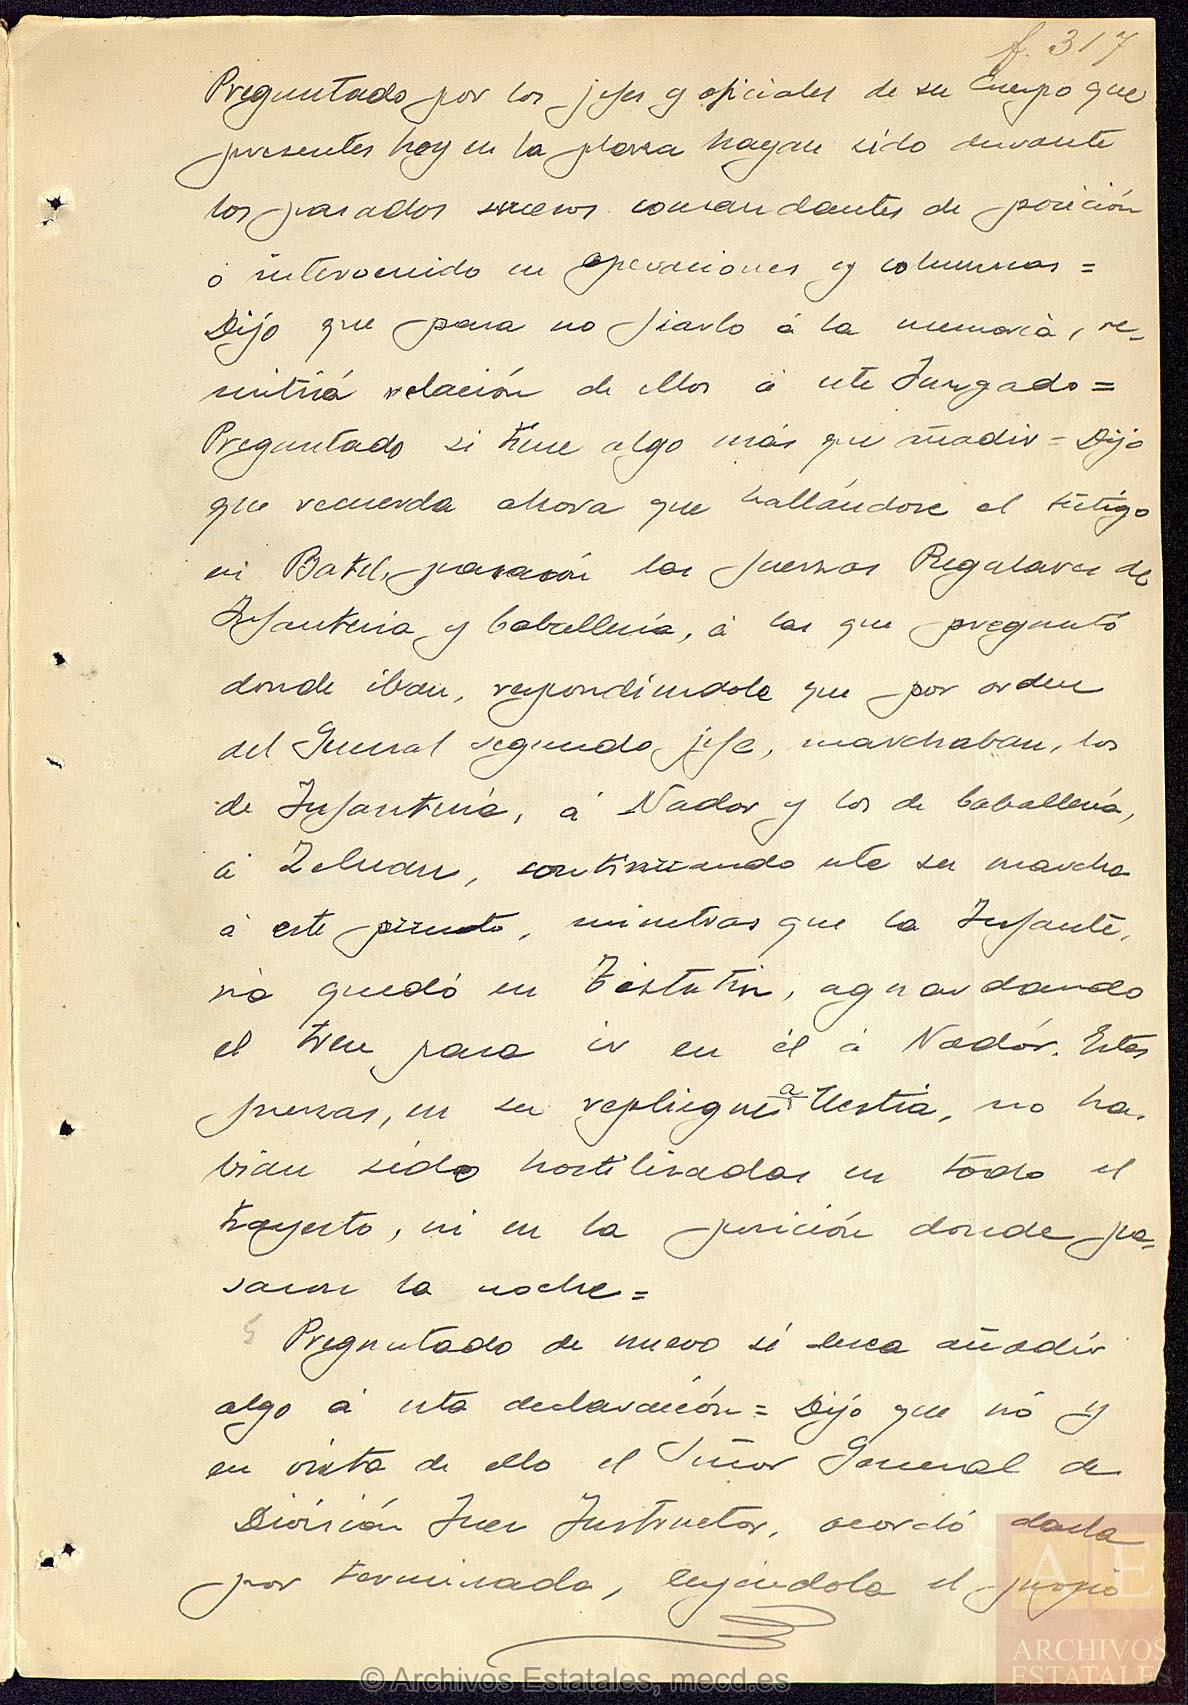 f. 317
Preguntado por los jefes y oficiales de su Cuerpo que
presentes hoy en la plaza hayan sido durante
los pasados sucesos comandantes de posición
ó intervenido en operaciones y columnas =
Dijo que para no fiarlo á la memoria, re-
mitirá relación de ellos á este Juzgado =
Preguntado si tiene algo más que añadir = Dijo
que recuerda ahora que hallándose el testigo
en Batel, pasarón las fuerzas Regulares de
Infantería y Caballería, á las que preguntó
donde iban, respondiendole que por orden
del General segundo jefe, marchaban, los
de Infantería, á Nador y los de Caballería,
á Zeluan, continuando este su marcha
á este punto, mientras que la Infante-
ria quedó en Tistutin, aguardando
el tren para ir en él á Nadór. Estas
fuerzas, en su repliegue a Uestia, no ha-
bian sido hostilizadas en todo el
trayecto, ni en la posición donde pa-
saron la noche =
Preguntado de nuevo si desea añadir
algo á esta declaración = Dijo que nó y
en vista de ello el Señor General de
División Juez Instructor, acordó darla
por terminada, leyéndola el propio
© Archivos Estatales, mecd.es
AE
ARCHIVOS
ESTATALES